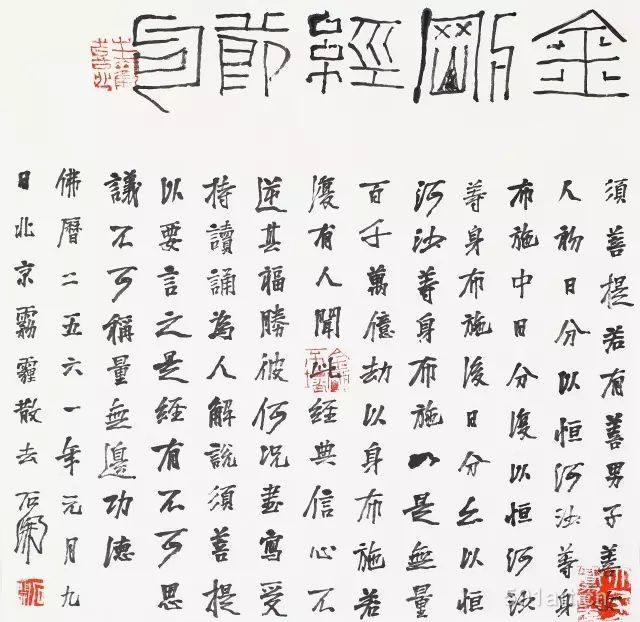 金剛經節
須菩提若有善男子善女
人初日分以恒河沙等身
布施中日分復以恒河沙
等身布施後日分亦以恒
河沙等身布施如是無量
百千萬億劫以身布施若
復有人聞此經典信心不
逆其福勝彼何況書寫受
持讀誦為人解說須菩提
以要言之是經有不可思
議不可稱量無邊功德
佛曆二五六一年元月九
日北京霧霾散去石虎